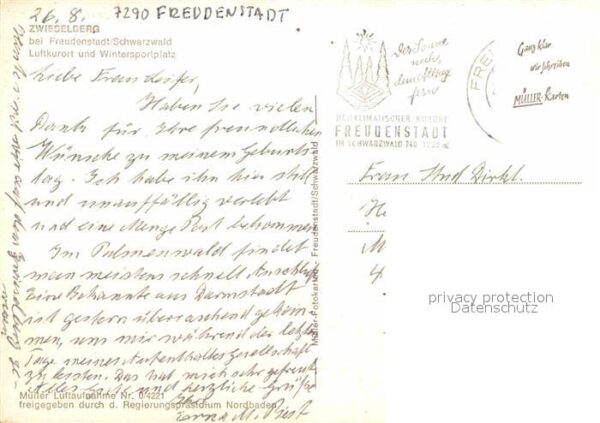 26. 8.
7290 FREUDENSTADT
ZWIESELBERG
bei Freudenstadt/Schwarzwald
Luftkurort und Wintersportplatz
Liebe Frau
Haben Sie vielen
Dank für Ihre freundlichen
Wünsche zu meinem Geburts-
tag. Ich habe ihn hier still
und unauffällig verlebt
und eine Menge Post bekommen.
Im Palmenwald findet
man meistens schnell Anschluß.
Eine Bekannte aus Darmstadt
ist gestern überraschend gekom-
men, um mir während der letzten
Tage meines Aufenthaltes Gesellschaft
zu leisten. Das hat mich sehr gefreut.
Alles Gute und herzliche Grüße
Ihre
Erna M.
Müller Luftaufnahme Nr. 0/4221
freigegeben durch d. Regierungspräsidium Nordbaden
auf dem Zwieselberg
Müller-Fotokarten · Freudenstadt/Schwarzwald
Der Sonne
nah,
dem Alltag
fern
HEILKLIMATISCHER KURORT
FREUDENSTADT
IM SCHWARZWALD 740
FRE
Ganz klar
wir schreiben
MÜLLER-Karten
Frau
privacy protection
Datenschutz